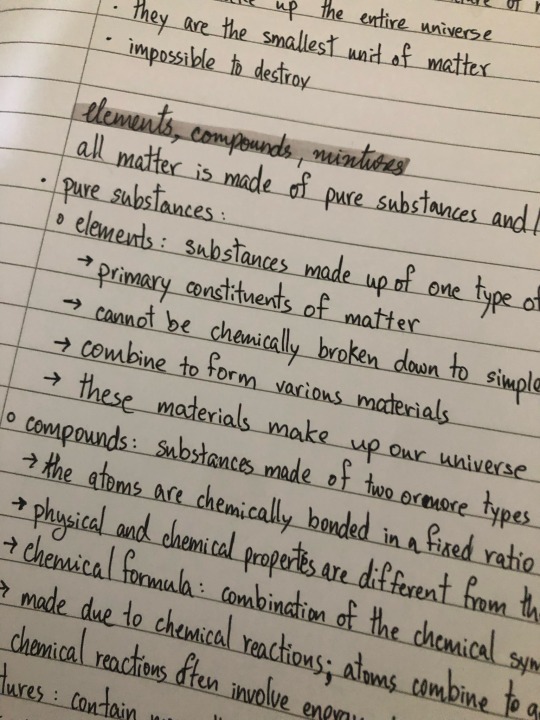 up the entire universe
· they are the smallest unit of matter
· impossible to destroy
elements, compounds, mixtures
all matter is made of pure substances and
· pure substances:
o elements: substances made up of one type of
→ primary constituents of matter
→ cannot be chemically broken down to simple
→ combine to form various materials
→ these materials make up our universe
o compounds: substances made of two or more types
→ the atoms are chemically bonded in a fixed ratio
→ physical and chemical propertes are different from th
→ chemical formula: combination of the chemical sym
→ made due to chemical reactions; atoms combine to
chemical reactions often involve energy
tures: contain